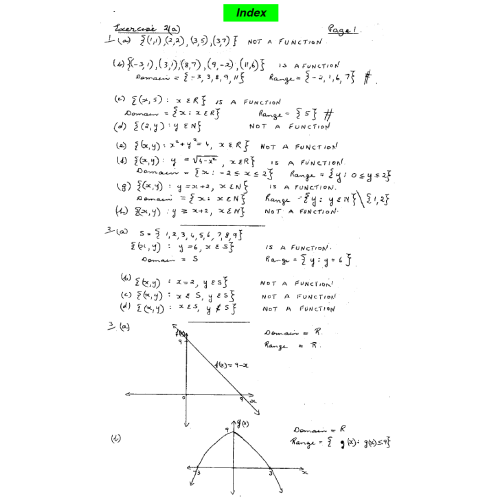 Index
Exercise 2(a) Page 1.
1 (a) {(1,1),(2,2),(3,5),(3,7)} NOT A FUNCTION
(b) {(-3,1),(3,1),(8,7),(9,-2),(11,6)} IS A FUNCTION
Domain = {-3,3,8,9,11} Range = {-2,1,6,7} #
(c) {(x,5) : x ε R} IS A FUNCTION
Domain = {x : x ε R} Range = {5} #
(d) {(2,y) : y ε N} NOT A FUNCTION
(e) {(x,y) : x²+y²=4, x ε R} NOT A FUNCTION
(f) {(x,y) : y = √4-x², x ε R} IS A FUNCTION
Domain = {x : -2 ≤ x ≤ 2} Range = {y : 0 ≤ y ≤ 2}
(g) {(x,y) : y = x+2, x ε N} IS A FUNCTION.
Domain = {x : x ε N} Range = {y : y ε N} \ {1,2}
(h) {(x,y) : y ≥ x+2, x ε N} NOT A FUNCTION.
2 (a) S = {1,2,3,4,5,6,7,8,9}
{(x,y) : y=6, x ε S} IS A FUNCTION.
Domain = S Range = {y : y=6}
(b) {(x,y) : x=2, y ε S} NOT A FUNCTION
(c) {(x,y) : x ε S, y ε S} NOT A FUNCTION
(d) {(x,y) : x ε S, y ∉ S} NOT A FUNCTION
3 (a) f(x) Domain = R.
9 Range = R.
f(x) = 9-x
9 x
(b) 9 g(x) Domain = R
Range = { g(x) : g(x) ≤ 9}
-3 3 x